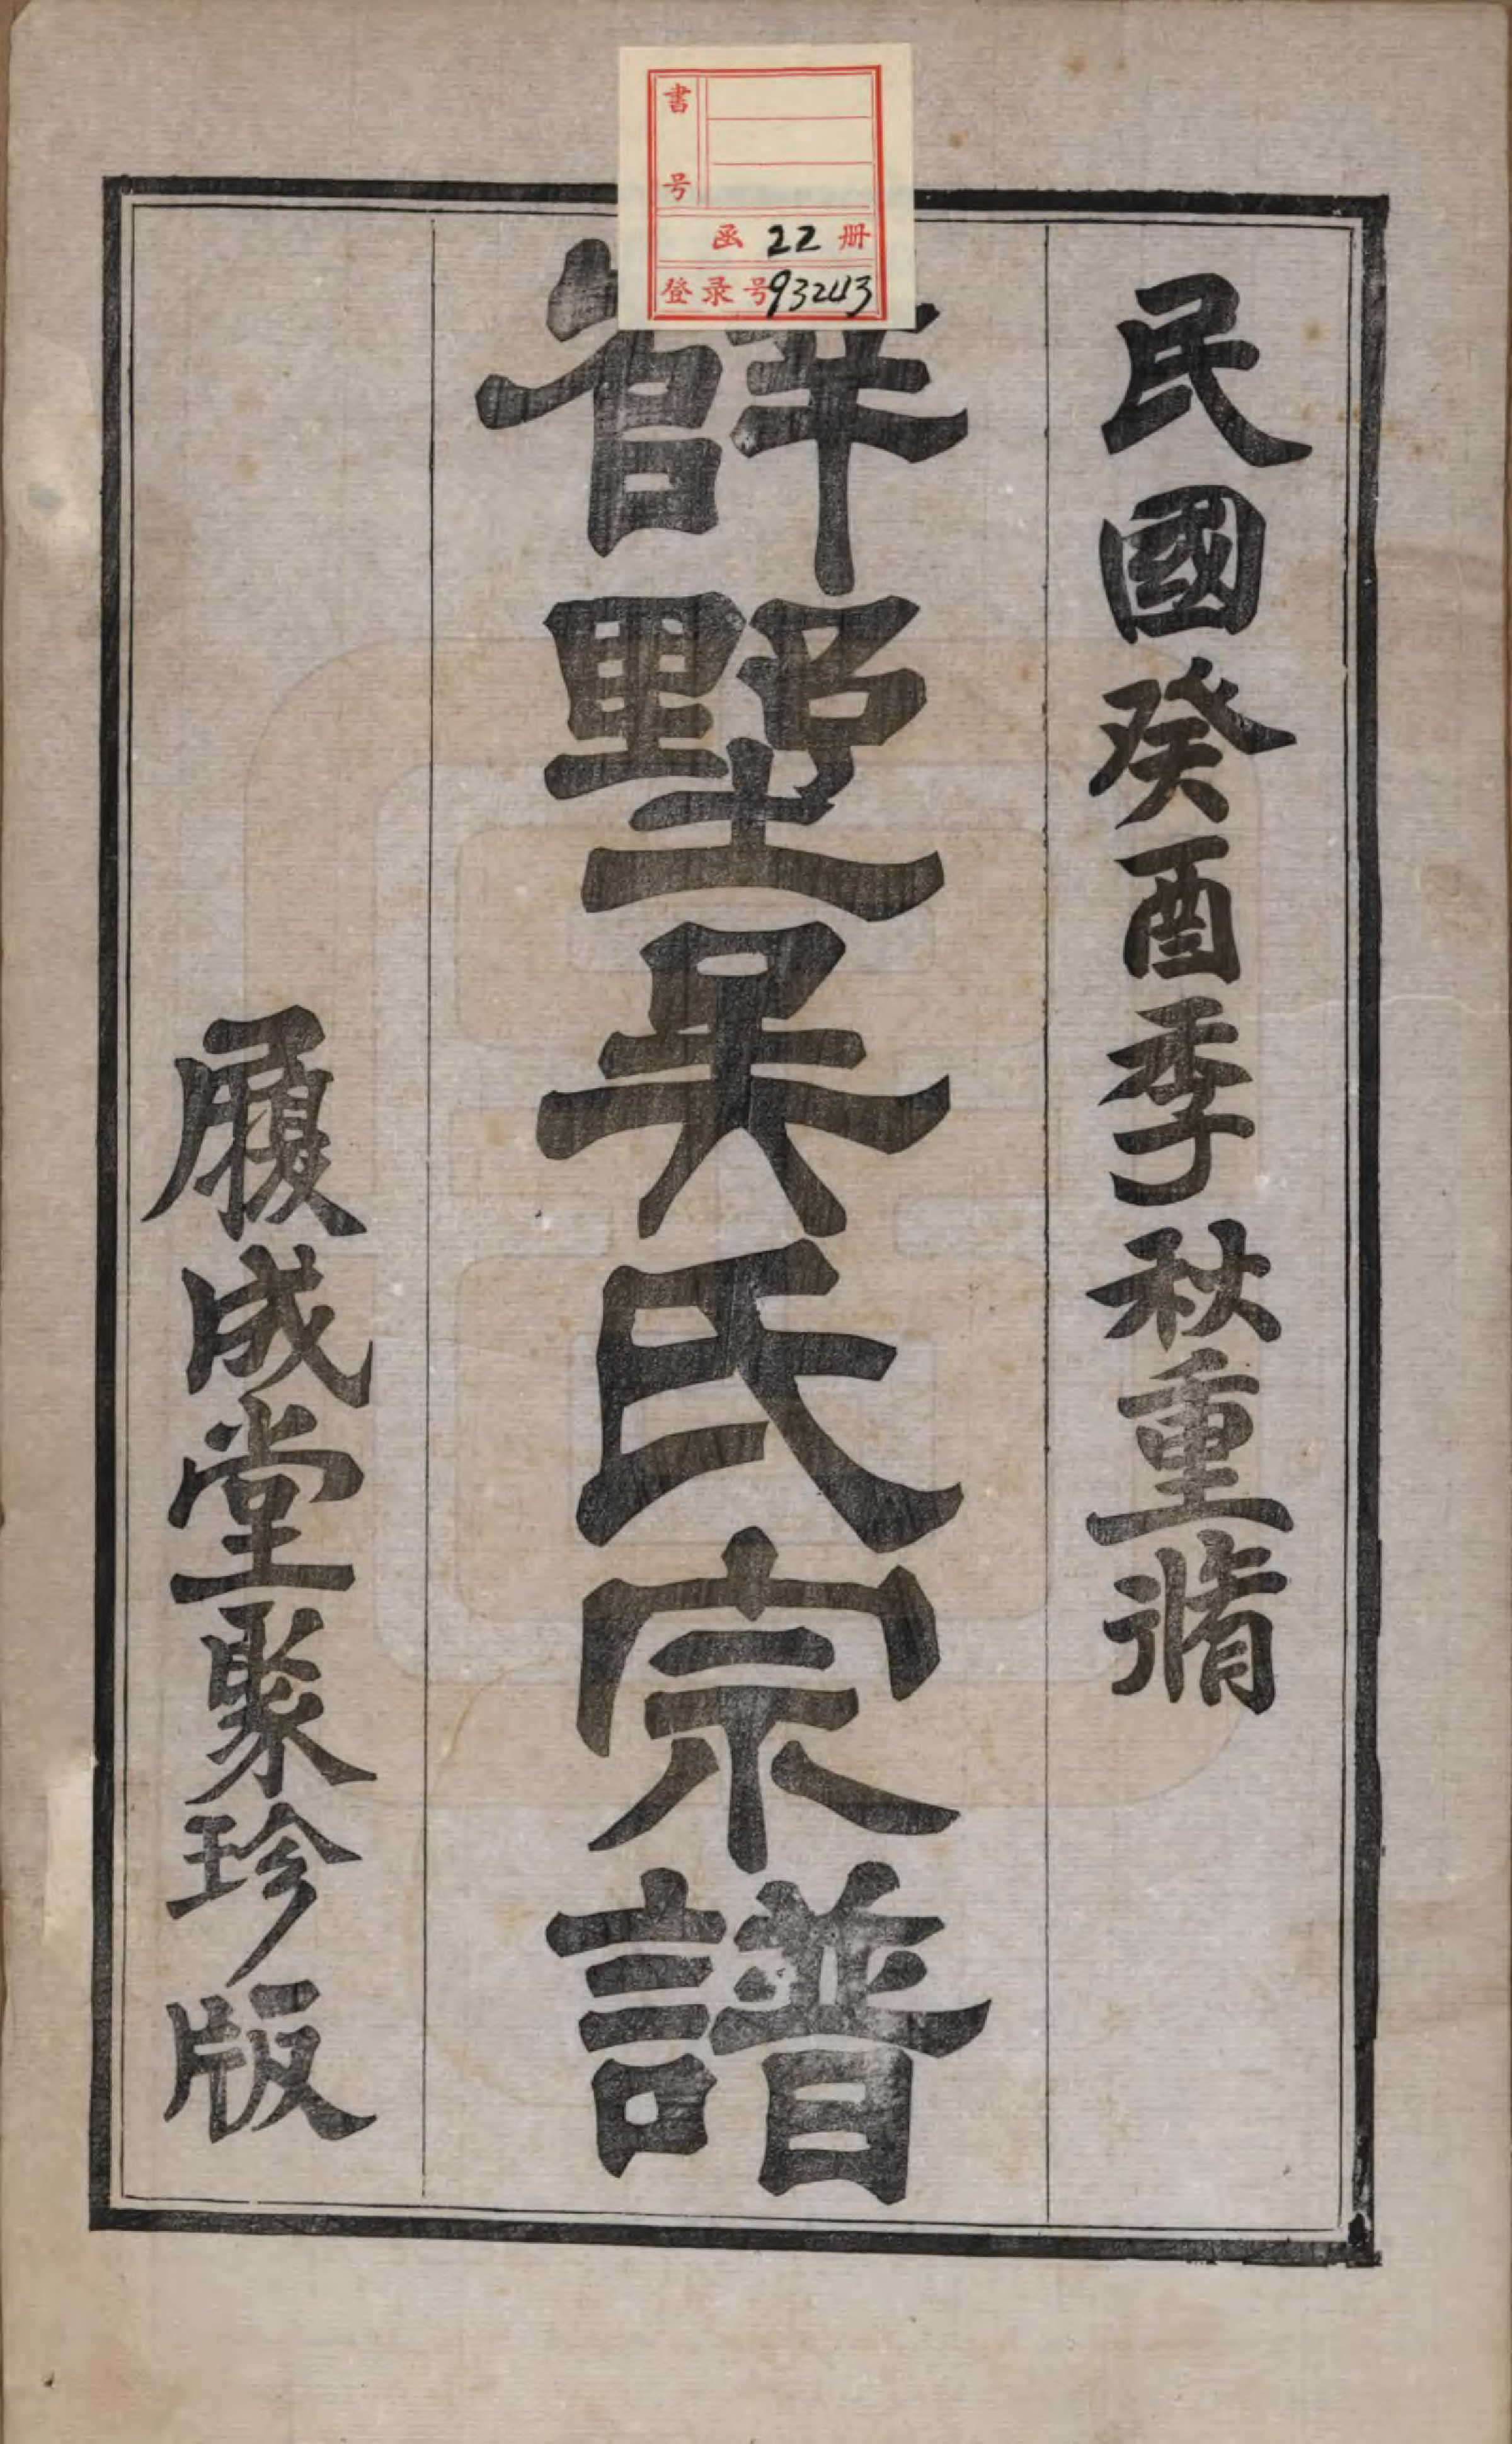 書号
函 22 册
登录号93243
民國癸酉季秋重脩
辥墅吳氏宗譜
履成堂聚珍版